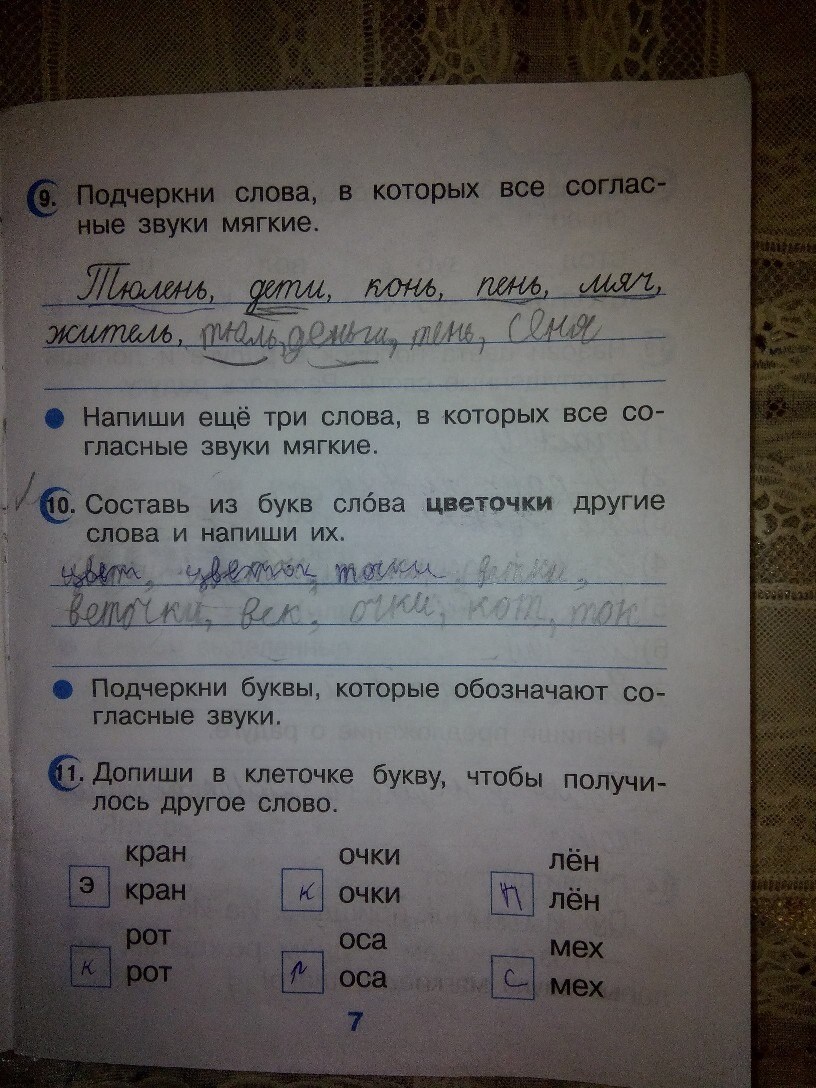 9. Подчеркни слова, в которых все соглас-
ные звуки мягкие.
Тюлень, дети, конь, пень, мяч,
житель, тюль, деньги, тень, Сеня
Напиши ещё три слова, в которых все со-
гласные звуки мягкие.
10. Составь из букв сло́ва цветочки другие
слова и напиши их.
цвет, цветок, точки,
веточки, век, очки, кот, ток
Подчеркни буквы, которые обозначают со-
гласные звуки.
11. Допиши в клеточке букву, чтобы получи-
лось другое слово.
кран очки лён
э кран к очки п лён
рот оса мех
к рот р оса с мех
7